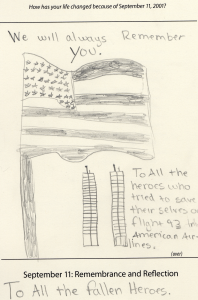 How has your life changed because of September 11, 2001?
We will always Remember
You!
To All the
heroes who
tried to save
their selves on
flight 93 in
American Air-
lines.
(over)
September 11: Remembrance and Reflection
To All the fallen Heroes.